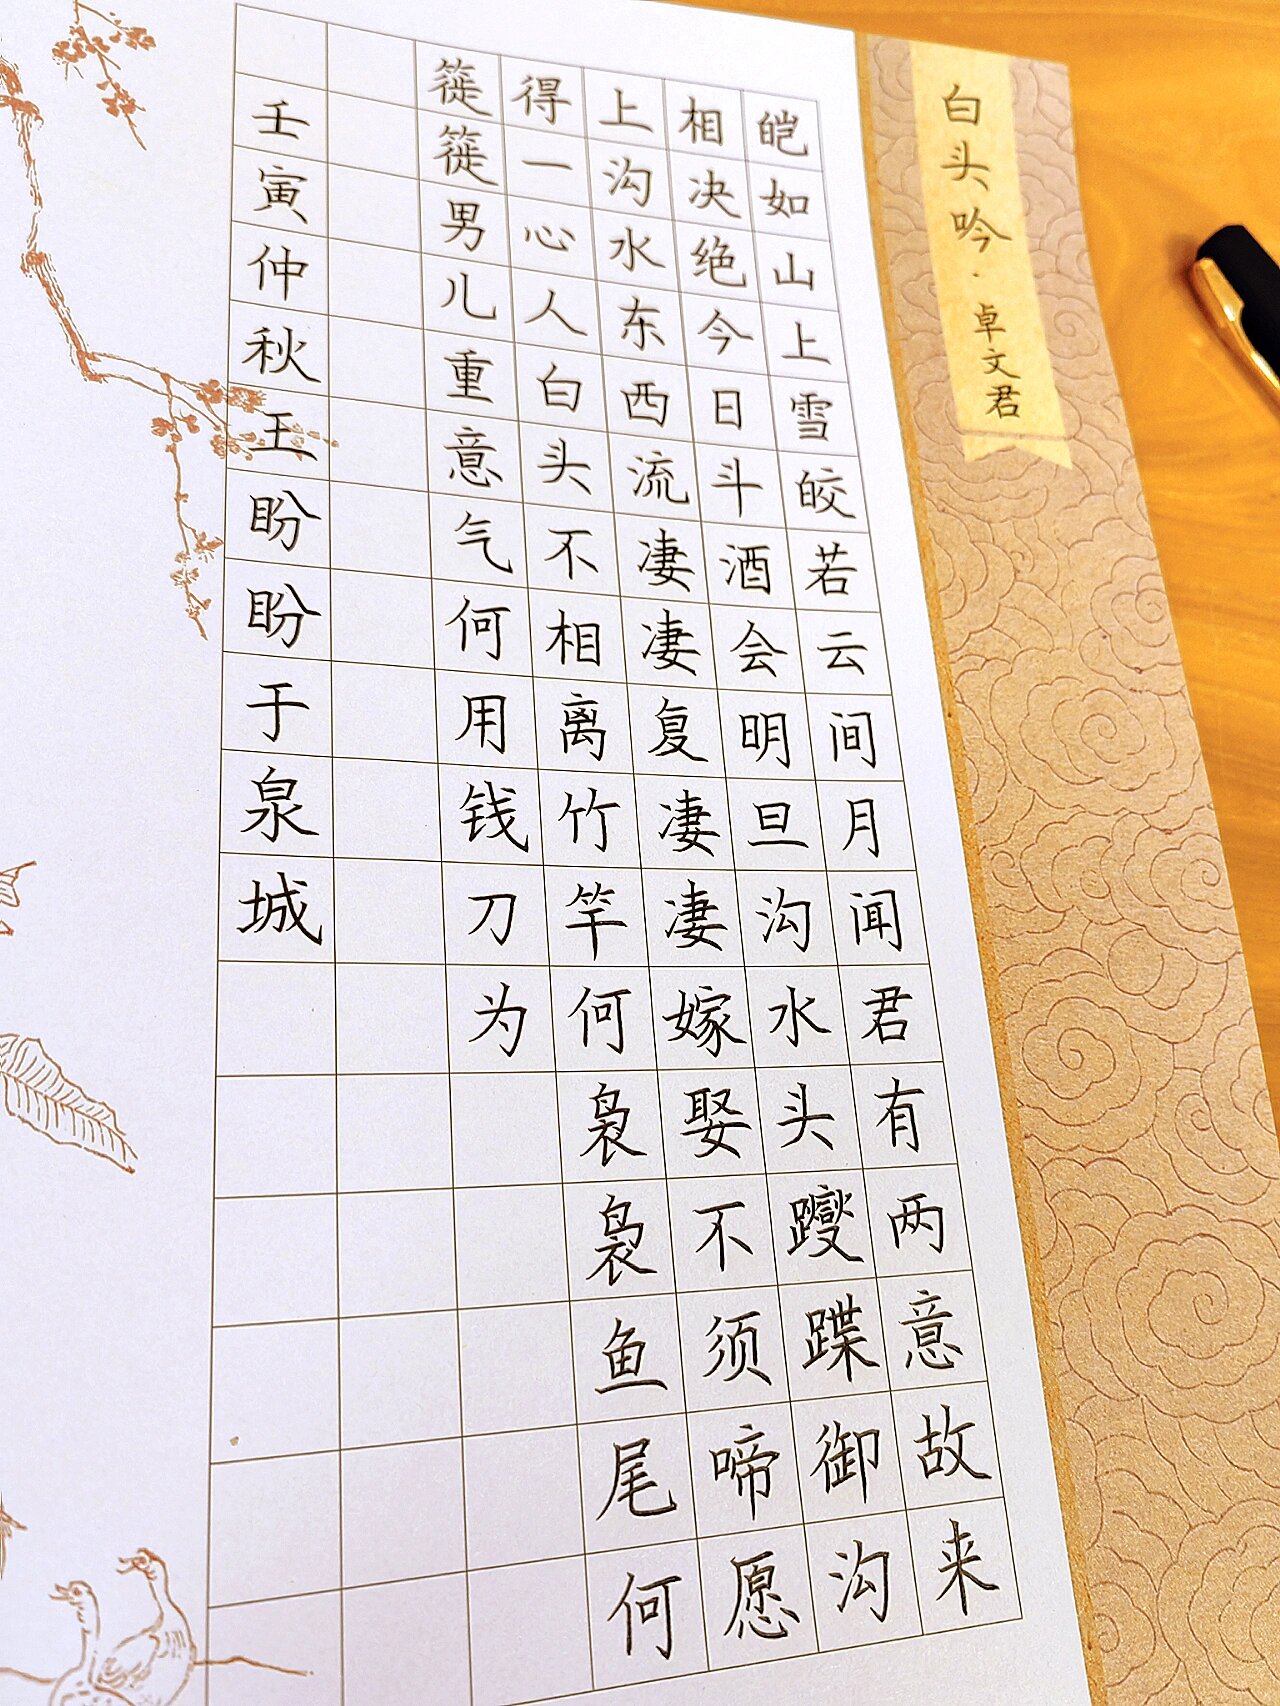 白头吟·卓文君
皑如山上雪皎若云间月闻君有两意故来
相决绝今日斗酒会明旦沟水头躞蹀御沟
上沟水东西流凄凄复凄凄嫁娶不须啼愿
得一心人白头不相离竹竿何袅袅鱼尾何
簁簁男儿重意气何用钱刀为
壬寅仲秋王盼盼于泉城